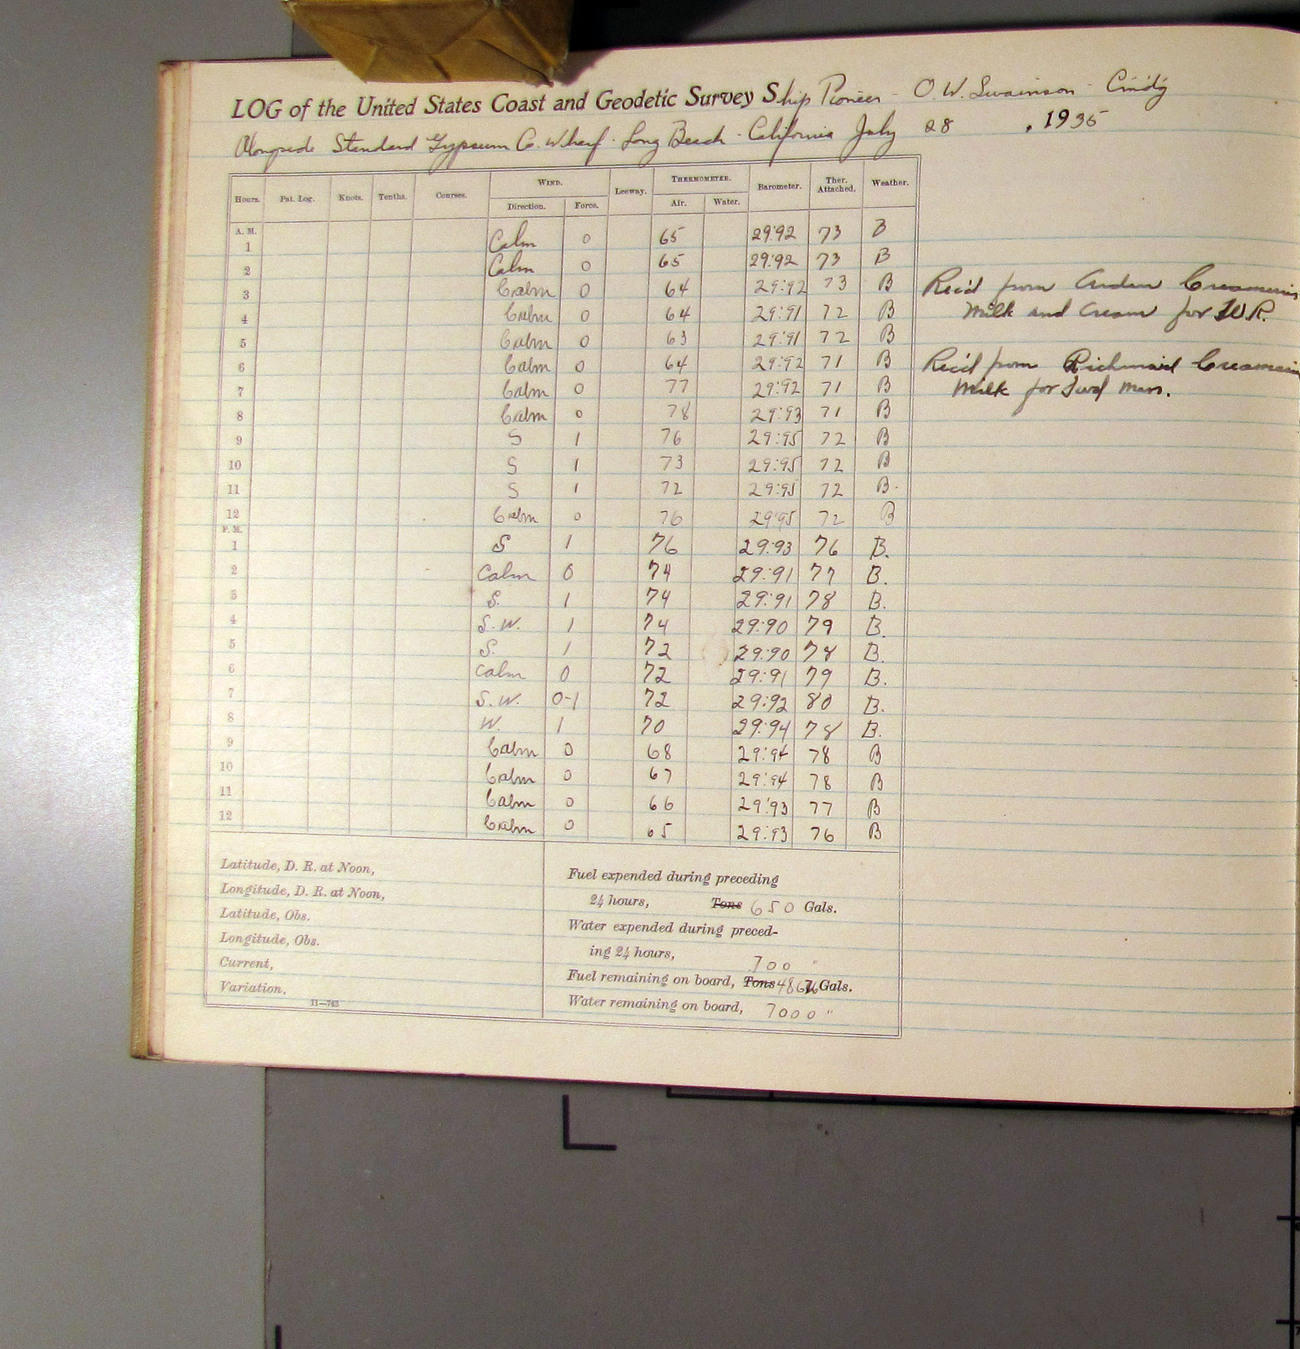 LOG of the United States Coast and Geodetic Survey Ship Pioneer - O. W. Swainson - Cmdg
Alongside Standard Gypsum Co. Wharf - Long Beach - California July 28, 1935
Hours. Pat. Log. Knots. Tenths. Courses. WIND. Leeway. THERMOMETER. Barometer. Ther. Attached. Weather.
Direction. Force. Air. Water.
A. M.
1 Calm 0 65 29:92 73 B
2 Calm 0 65 29:92 73 B
3 Calm 0 64 29:92 73 B
4 Calm 0 64 29:91 72 B
5 Calm 0 63 29:91 72 B
6 Calm 0 64 29:92 71 B
7 Calm 0 77 29:92 71 B
8 Calm 0 78 29:93 71 B
9 S 1 76 29:95 72 B
10 S 1 73 29:95 72 B
11 S 1 72 29:95 72 B.
12 Calm 0 76 29:95 72 B
P. M.
1 S 1 76 29:93 76 B.
2 Calm 0 74 29:91 77 B.
3 S. 1 74 29:91 78 B.
4 S.W. 1 74 29:90 79 B.
5 S. 1 72 29:90 78 B.
6 Calm 0 72 29:91 79 B.
7 S.W. 0-1 72 29:92 80 B.
8 W. 1 70 29:94 78 B.
9 Calm 0 68 29:94 78 B
10 Calm 0 67 29:94 78 B
11 Calm 0 66 29:93 77 B
12 Calm 0 65 29:93 76 B
Rec'd from Arden Creameries
Milk and Cream for W.R.
Rec'd from Richmaid Creameries
Milk for Fwd Mess.
Latitude, D. R. at Noon,
Longitude, D. R. at Noon,
Latitude, Obs.
Longitude, Obs.
Current,
Variation,
11—763
Fuel expended during preceding
24 hours, Tons 650 Gals.
Water expended during preced-
ing 24 hours, 700 "
Fuel remaining on board, Tons Gals.
Water remaining on board, 7000 "